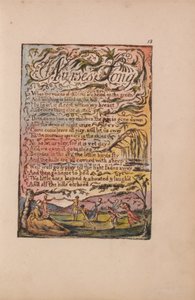 Nurse's Song
When the voices of children are heard on the green
And laughing is heard on the hill,
My heart is at rest within my breast
And every thing else is still
Then come home my children the sun is gone down
And the dews of night arise
Come come leave off play, and let us away
Till the morning appears in the skies
No no let us play, for it is yet day
And we cannot go to sleep
Besides in the sky, the little birds fly
And the hills are all coverd with sheep
Well well go & play till the light fades away
And then go home to bed
The little ones leaped & shouted & laugh'd
And all the hills ecchoed